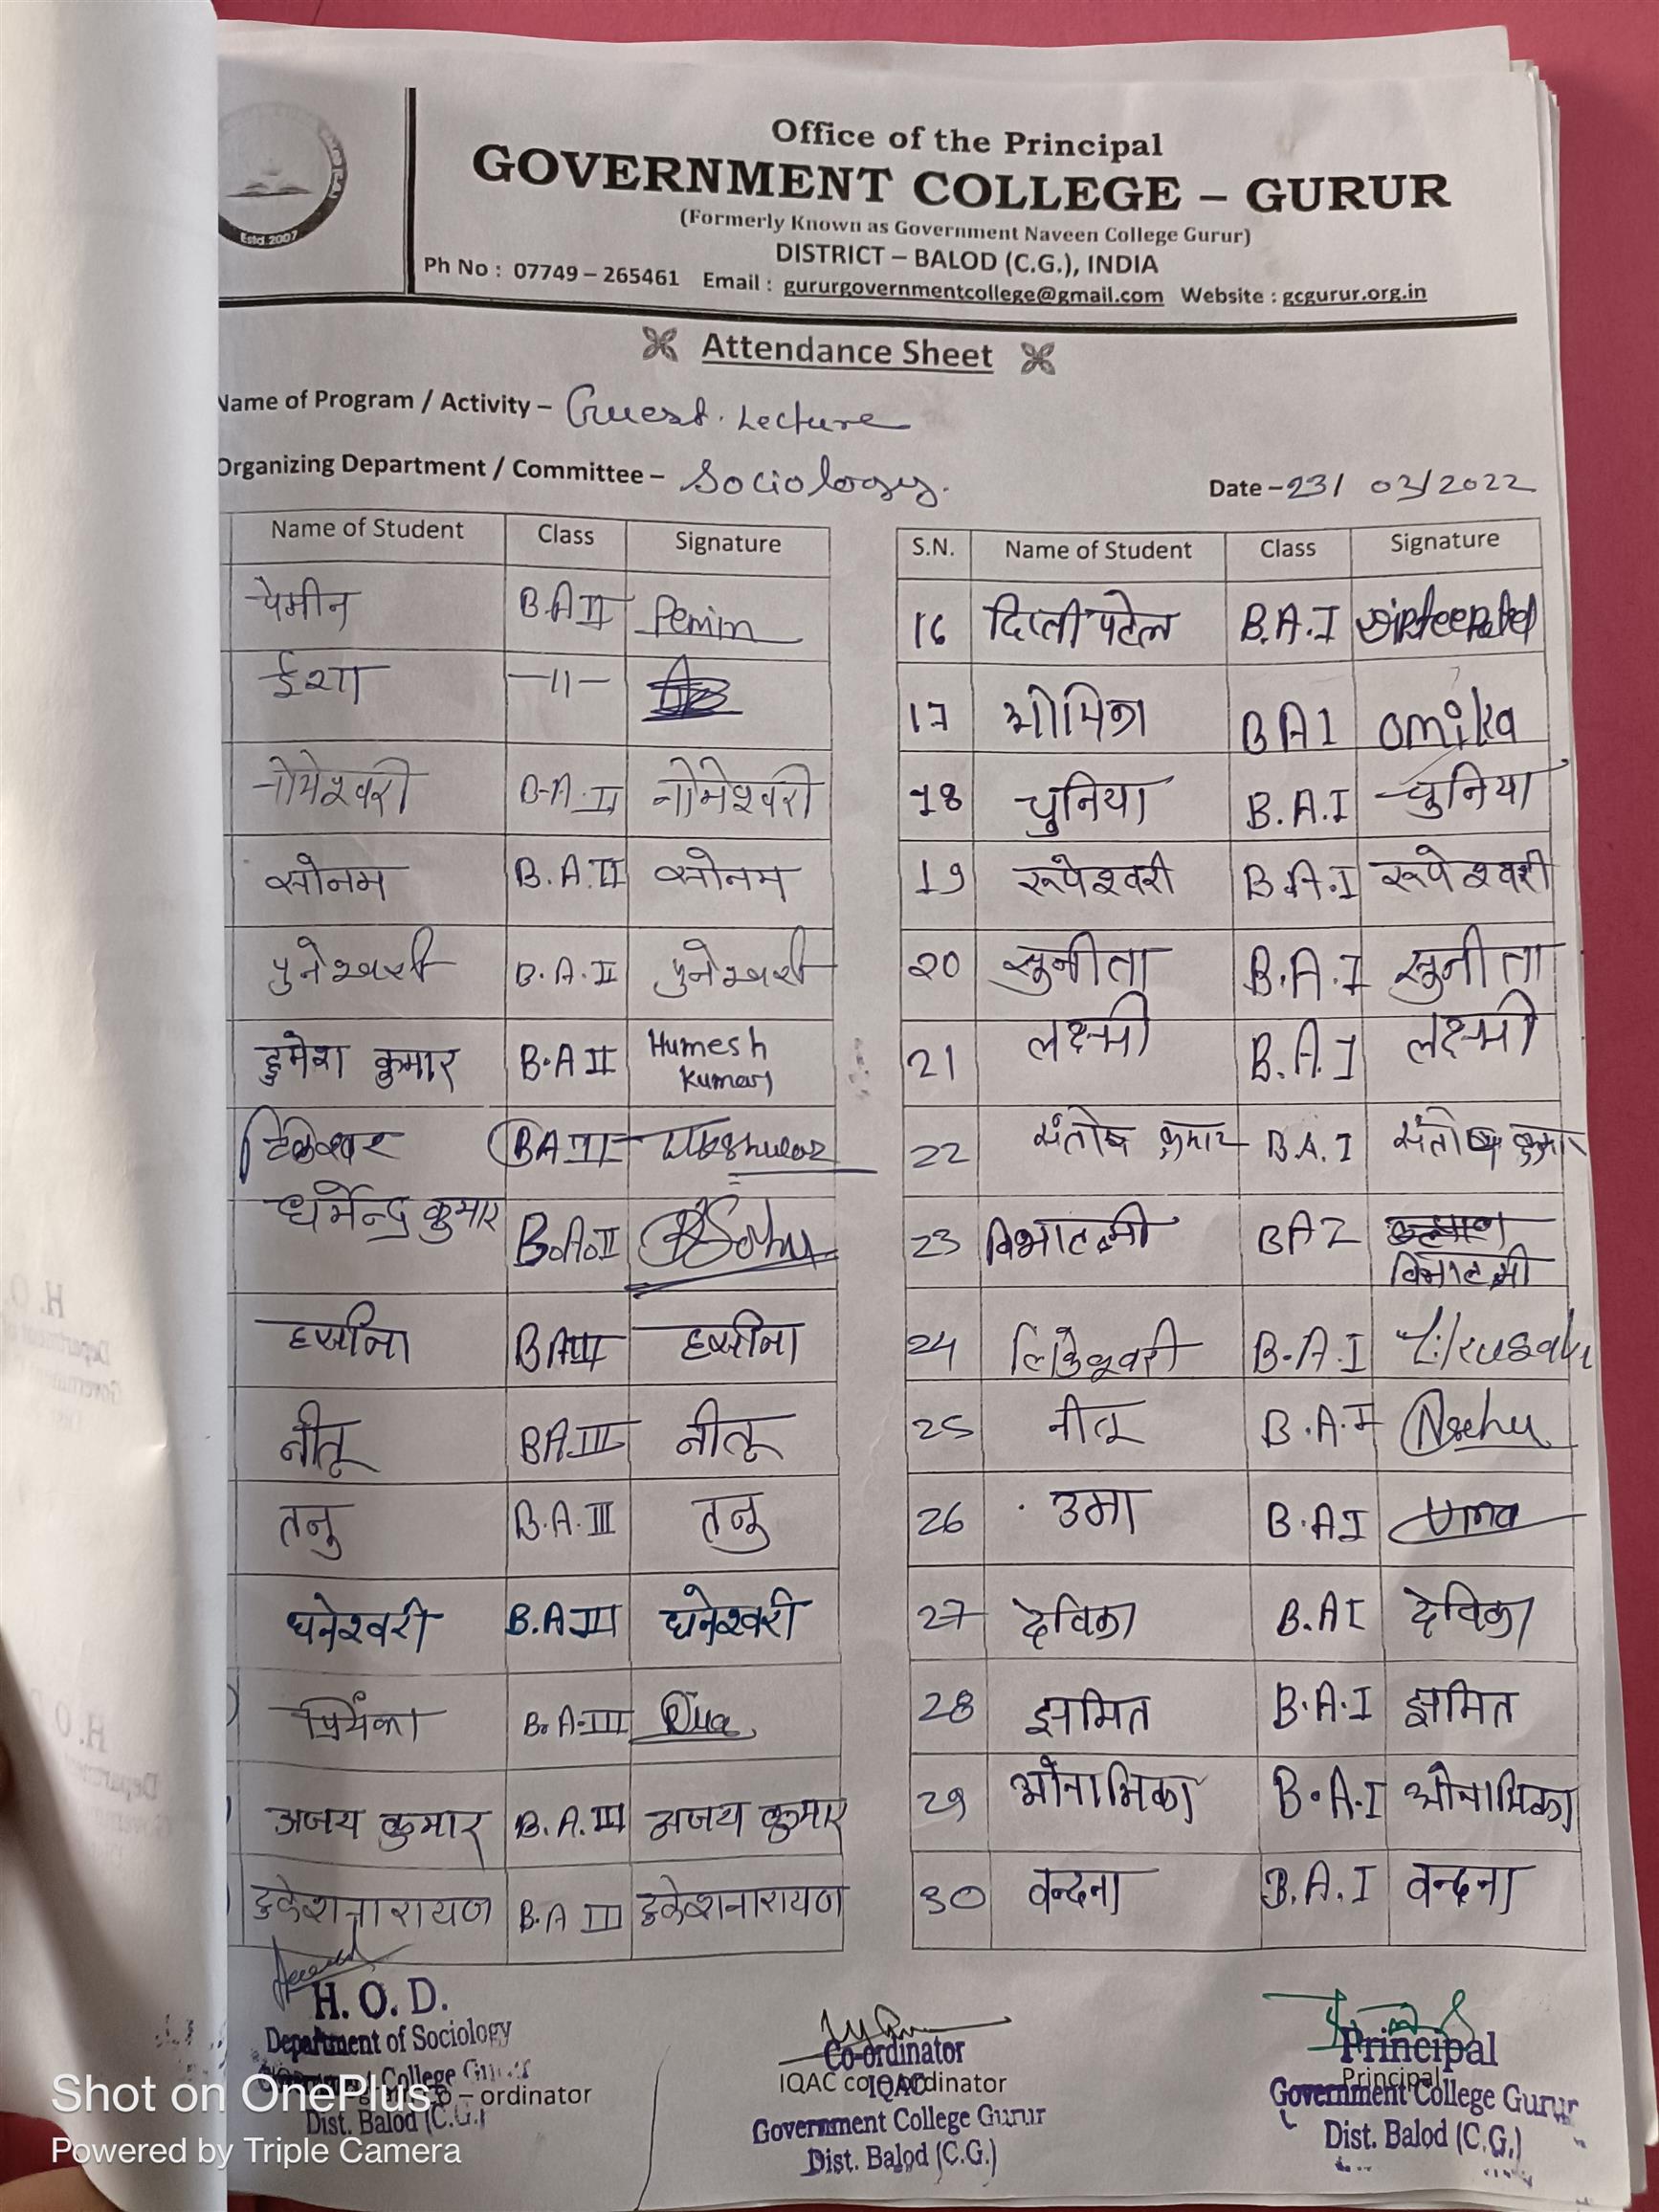 Estd.2007
Office of the Principal
GOVERNMENT COLLEGE – GURUR
(Formerly Known as Government Naveen College Gurur)
DISTRICT – BALOD (C.G.), INDIA
Ph No : 07749 – 265461 Email : gururgovernmentcollege@gmail.com Website : gcgurur.org.in
Attendance Sheet
Name of Program / Activity – Guest. Lecture
Organizing Department / Committee – Sociology.
Date – 23/ 03/2022
Name of Student Class Signature
पेमीन B.A II Pemin
ईशा —11—
नोमेश्वरी B.A. II नोमेश्वरी
सोनम B.A.II सोनम
पुनेश्वरी B.A.II पुनेश्वरी
हुमेश कुमार B.A II Humesh
Kumar
टिकेश्वर BA III
धर्मेन्द्र कुमार B.A.II
हसीना BA III हसीना
नीतू BA.III नीतू
तनु B.A.III तनु
घनेश्वरी B.A III घनेश्वरी
प्रियंका B.A-III
अजय कुमार B.A.III अजय कुमार
डुकेशनारायण B.A III डुकेशनारायण
S.N. Name of Student Class Signature
16 दिप्ती पटेल B.A.I
17 ओमिका B A I omika
18 चुनिया B.A.I चुनिया
19 रूपेश्वरी B.A.I रूपेश्वरी
20 सुनीता B.A.I सुनीता
21 लक्ष्मी B.A.I लक्ष्मी
22 संतोष कुमार B.A.I संतोष कुमार
23 BA I
24 B.A.I
25 नीतू B.A.I
26 उमा B.A I Uma
27 देविका B.A I देविका
28 झमित B.A.I झमित
29 ओनामिका B.A.I ओनामिका
30 वन्दना B.A.I वन्दना
H.O.D.
Department of Sociology
College
– ordinator
Dist. Balod (C.G.)
Co-ordinator
IQAC co – ordinator
IQAC
Government College Gurur
Dist. Balod (C.G.)
Principal
Principal
Government College Gurur
Dist. Balod (C.G.)
Shot on OnePlus
Powered by Triple Camera